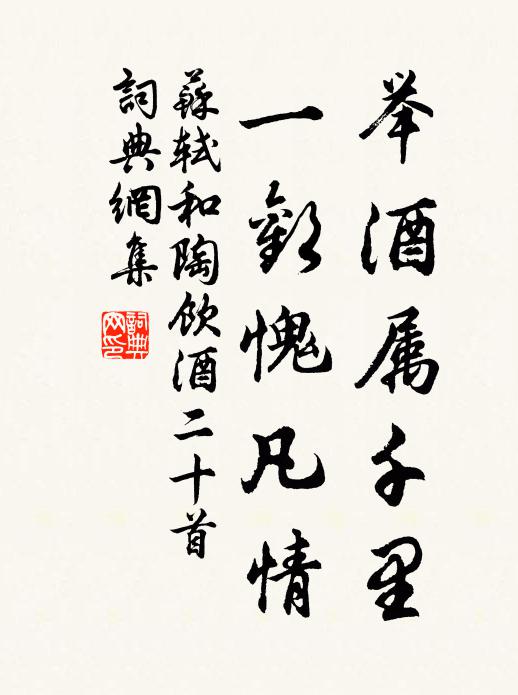 举酒属千里
一歡愧凡情
蘇軾和陶飲酒二十首
詞典網集
詞典网印